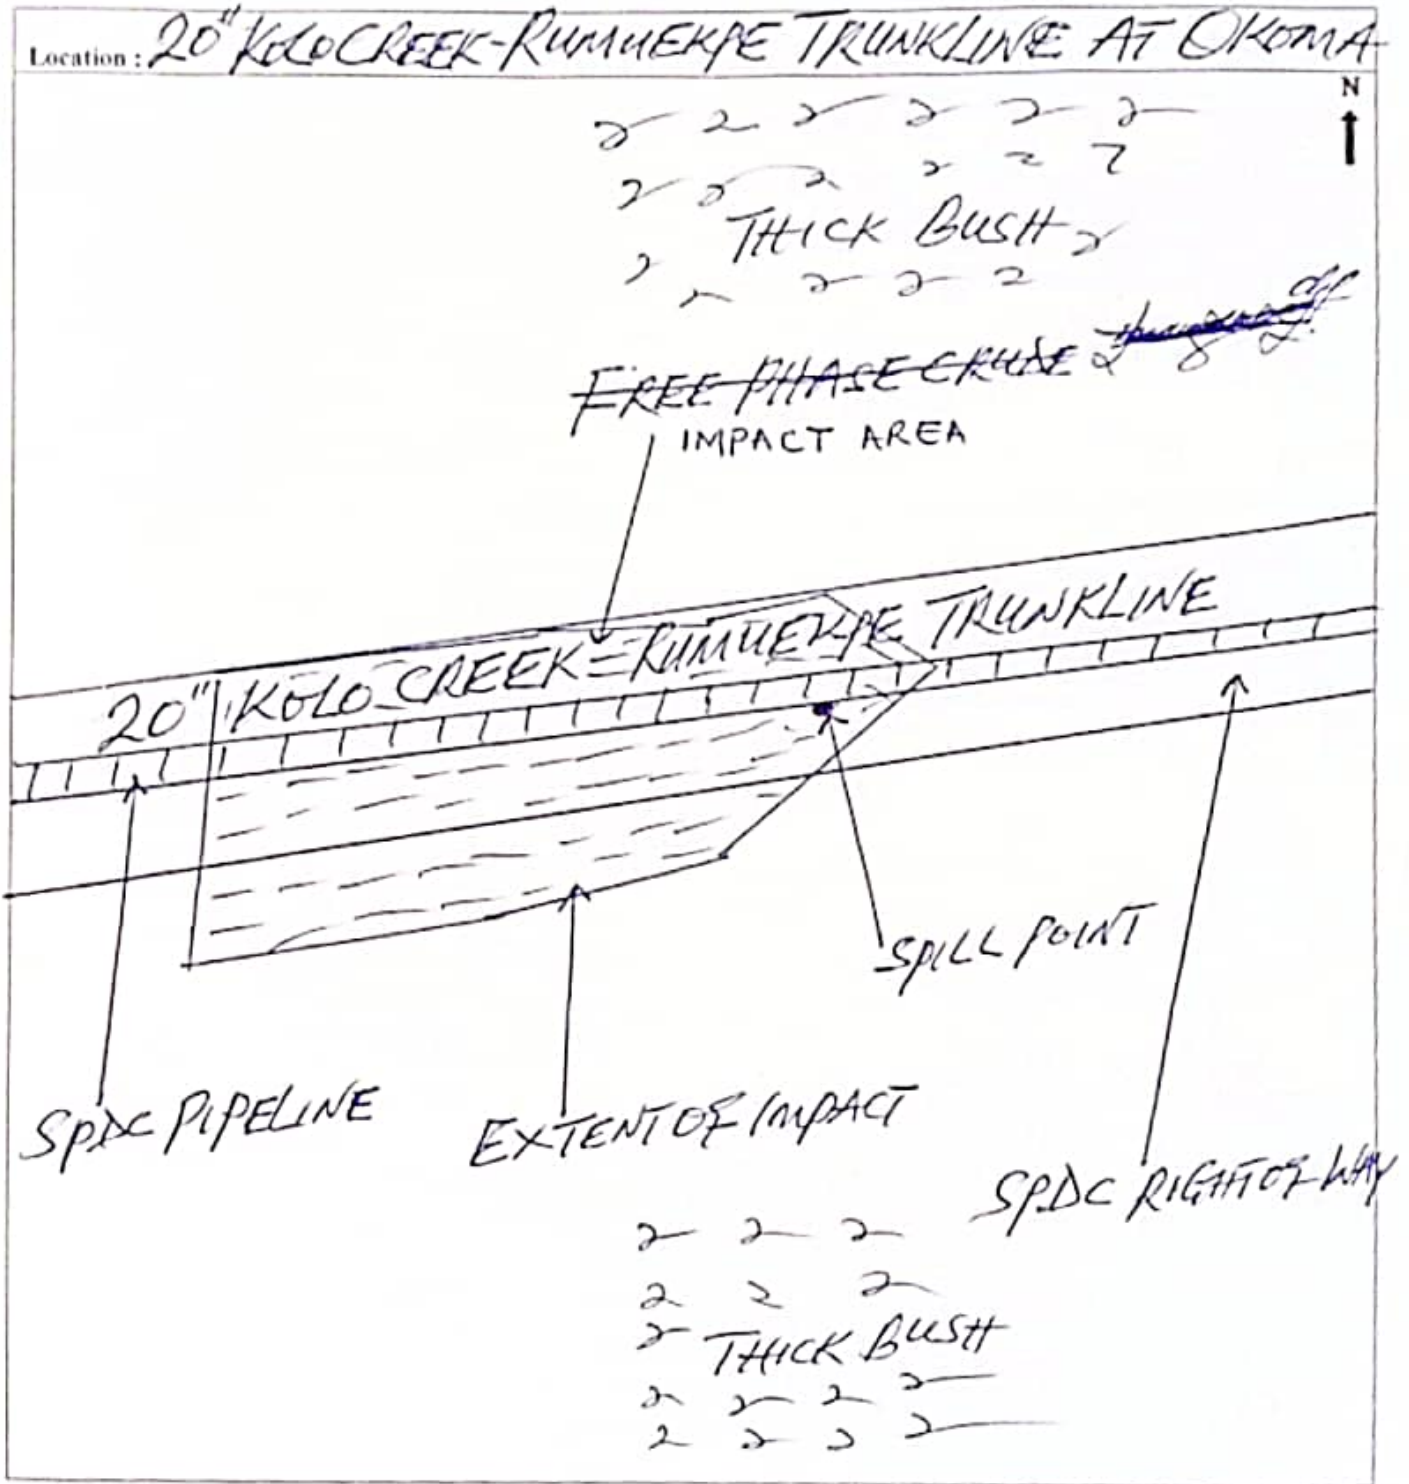 Location : 20" KOLO CREEK-RUMUEKPE TRUNKLINE AT OKOMA
N
THICK BUSH
FREE PHASE CRUDE
IMPACT AREA
20" KOLO CREEK-RUMUEKPE TRUNKLINE
SPILL POINT
SPDC PIPELINE
EXTENT OF IMPACT
SPDC RIGHT OF WAY
THICK BUSH